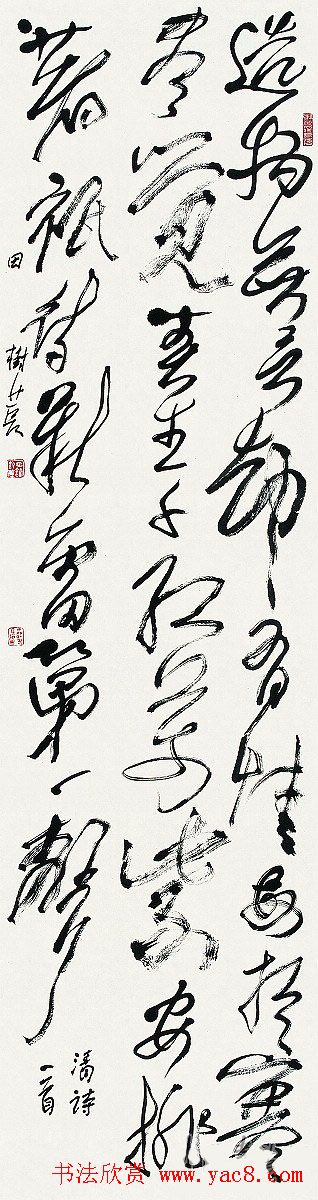 造物無言却有情每於寒
盡覺春生千紅萬紫安排
著祇待新雷第一聲
清詩
一首
田樹萇
书法欣赏 www.yac8.com